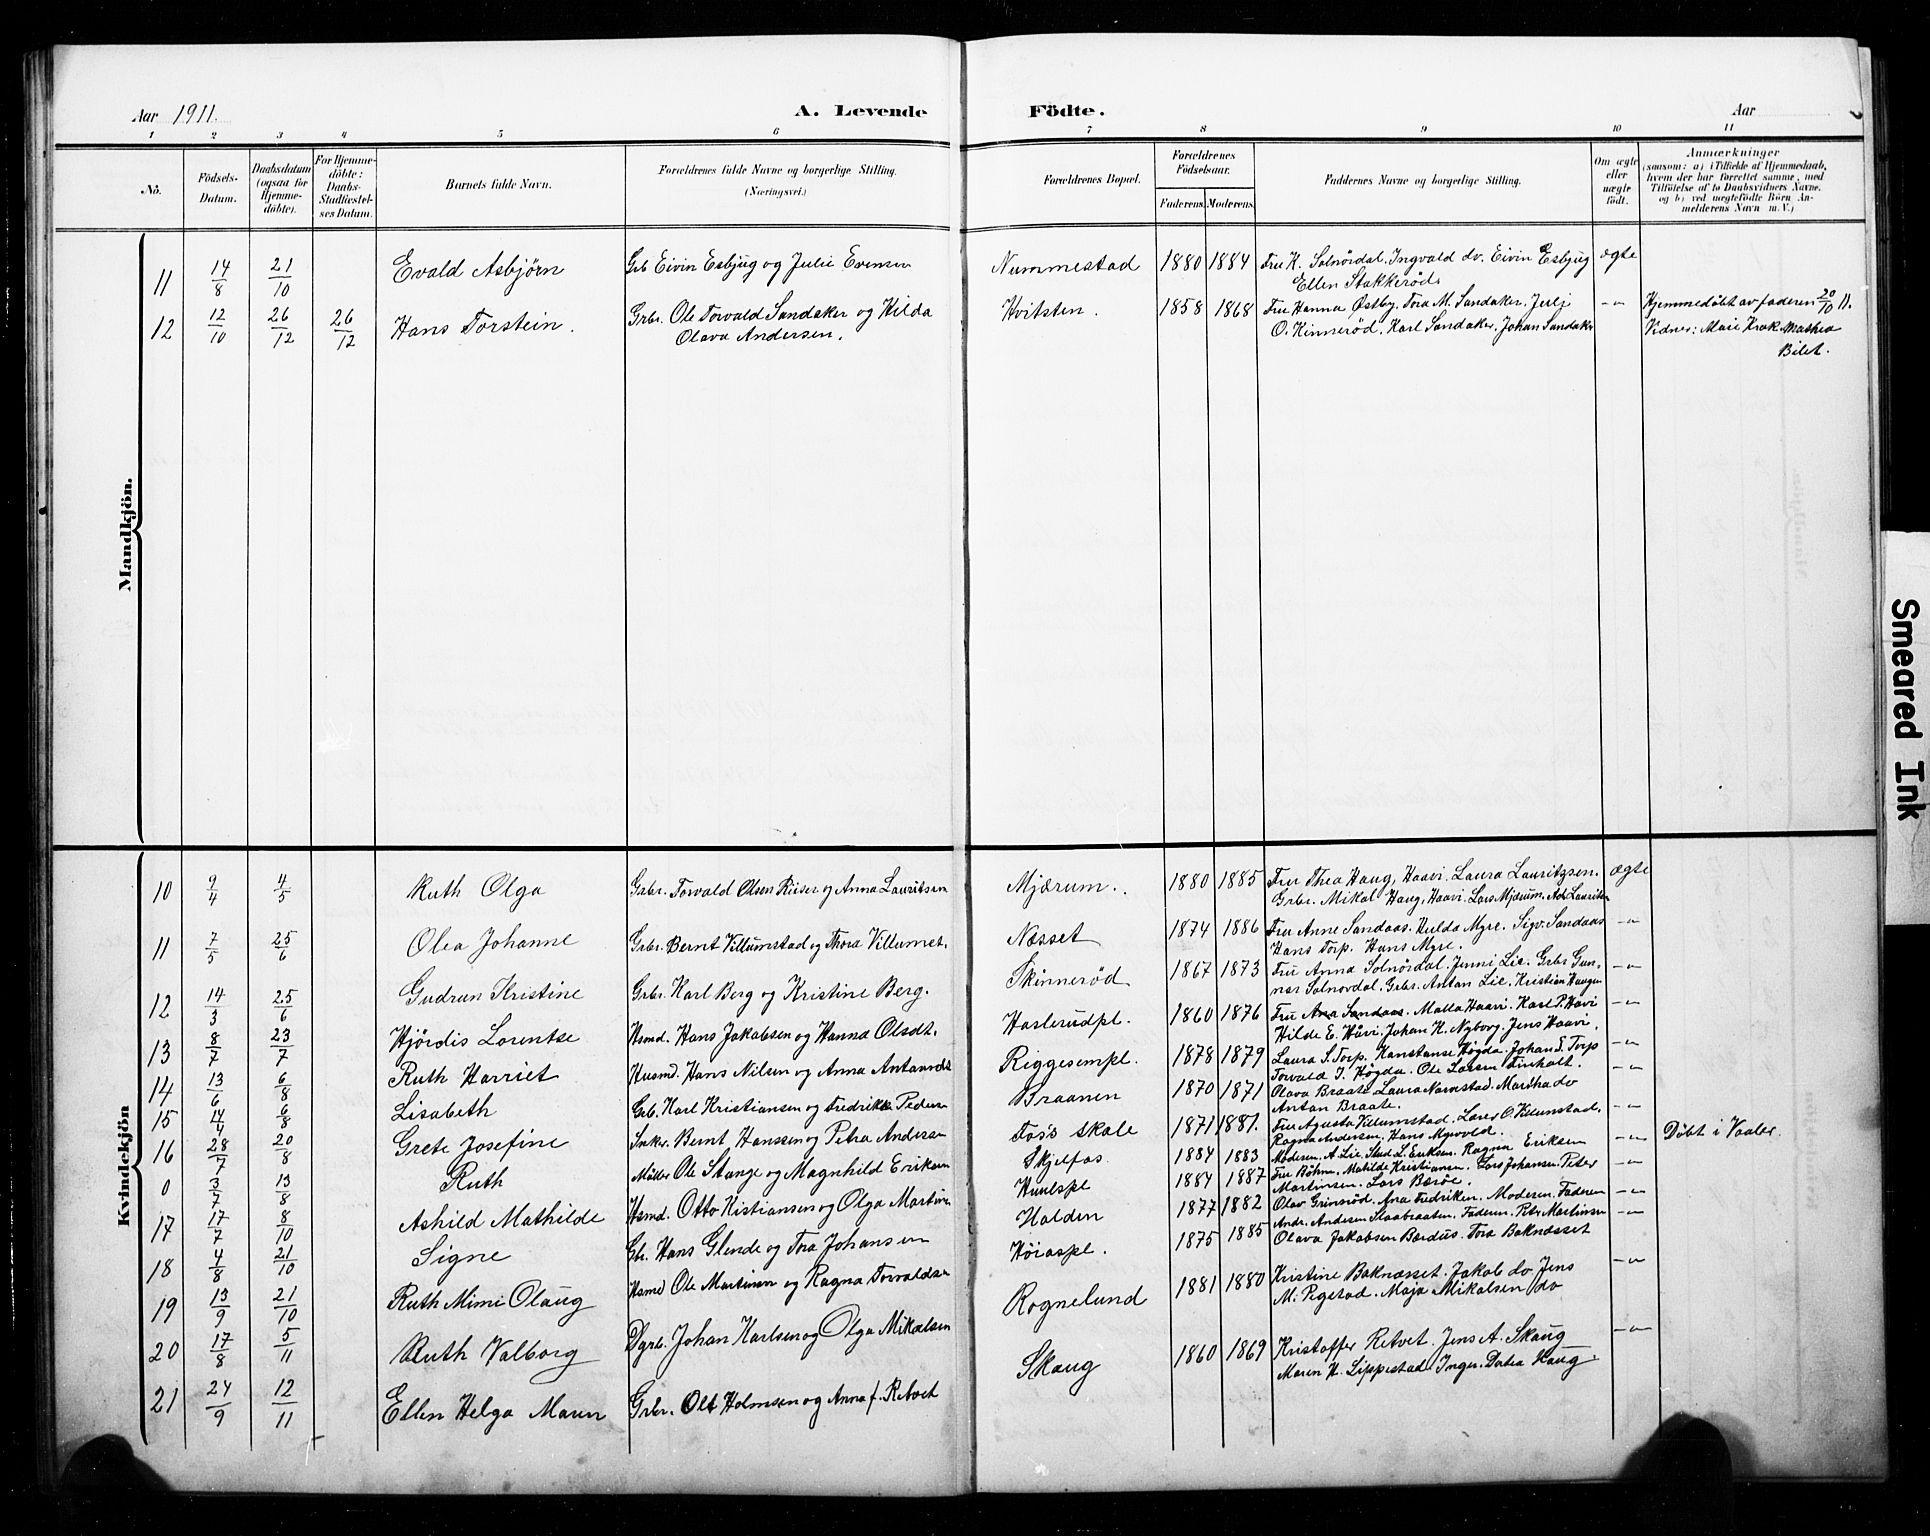 Aar 1911.
A. Levende Födte.
Aar
1 2 3 4 5 6 7 8 9 10 11
No.
Födsels-Datum.
Daabsdatum (ogsaa for Hjemme-döbte).
For Hjemme-döbte: Daabs-Stadfæstelses Datum.
Barnets fulde Navn.
Forældrenes fulde Navne og borgerlige Stilling. (Næringsvei.)
Forældrenes Bopæl.
Forældrenes Födselsaar.
Faderens. Moderens.
Faddernes Navne og borgerlige Stilling.
Om ægte eller uægte födt.
Anmærkninger
(saasom: a) i Tilfælde af Hjemmedaab, hvem der har forrettet samme, med Tilföielse af to Daabsvidners Navne, og b) ved uægtefödte Börn Anmelderens Navn m. V.)
Mandkjön.
11 14/8 21/10 Evald Asbjörn Grb Eivin Esbjug og Julie Evensen Nummestad 1880 1884 Fru K. Solnördal, Ingvald do. Eivin Esbjug ægte
Ellen Stakkeröd.
12 12/10 26/12 26/12 Hans Torstein. Grbr. Ole Torvald Sandaker og Hilda Hvitsten. 1858 1868 Fru Hanna Østby. Tora M. Sandaker. Julj -"- Hjemmedöbt av faderen 20/10 11.
Olava Andersen. O. Kinneröd. Karl Sandaker, Johan Sandaker Vidner: Maie Krok Mathea
Bilet.
Kvindekjön
10 9/4 4/5 Ruth Olga Grbr. Torvald Olsen Riiser og Anna Lauritsen Mjærum. 1880 1885 Fru Thea Haug, Haavi. Laura Lauritzsen. ægte
Grbr. Mikal Haug, Haavi. Lars Mjærum.
11 7/5 25/6 Olea Johanne Grbr. Bernt Villumstad og Thora Villumst. Næsset 1874 1886 Fru Anne Sandaas. Hulda Myre. Sigv. Sandaas -"-
Hans Torp. Hans Myre.
12 14/3 25/6 Gudrun Kristine Grbr. Karl Berg og Kristine Berg. Skinneröd 1867 1873 Fru Anna Solnördal. Jenni Lie. Grbr Gun- -"-
nar Solnördal. Grbr. Anton Lie. Kristian Haugen
13 8/7 23/7 Hjördis Lorentse Hsmd. Hans Jakobsen og Hanna Olsdt. Haslerudpl. 1860 1876 Fru Ana Sandaas. Malla Haavi. Karl P. Havi -"-
Hilde E. Håvi. Johan H. Nyborg. Jens Haavi.
14 13/6 6/8 Ruth Harriet Husmd. Hans Nilsen og Anna Antonsdt Riggesempl. 1878 1879 Laura S. Torp. Konstanse Høgda. Johan E. Torp -"-
Torvald J. Høgda. Ole Larsen
15 14/4 6/8 Lisabeth Grb. Karl Kristiansen og Fredrikke Peders- Braanen 1870 1871 Olava Braate. Laura Narvestad. Martha do -"-
Anton Braate.
16 28/7 20/8 Grete Josefine Snker. Bernt Hanssen og Petra Anderse Tos's skole 1871 1881. Fru Agusta Villumstad. Lares O Villumstad. -"-
Ragna Andersen. Hans Myrvold.
0 3/7 13/8 Ruth Müller Ole Stange og Magnhild Eriksen Skjelfos 1884 1883 Moderen. A Lie. Stud L. Eriksen. Ragna Eriksen -"- Döbt i Vaaler.
17 17/7 8/10 Ashild Mathilde Hsmd. Otto Kistiansen og Olga Martins Huulspl 1884 1887 Fru Böhm. Matilde Kristiansen. Lars Johansen. Peter -"-
Martinsen. Lars Bærøe.
18 4/8 21/10 Signe Gb. Hans Glende og Tora Johansen Halden 1877 1882 Olav Grinröd. Ana Fredriksen. Moderen. Faderen -"-
19 13/9 21/10 Ruth Mimi Olaug Hsmd Ole Martinsen og Ragna Torvaldse Höiaspl. 1875 1885 Andr. Andersen Staabraaten. Faderen. Petr Martinsen -"-
Olava Jakobsen Bærdus. Tora Baknæsset
20 17/8 5/11 Ruth Valborg Dgrb. Johan Karlsen og Olga Mikalsen Rognelund 1881 1880 Kristine Baknæsset. Jakob do Jens -"-
M. Rgstad. Maja Mikalsen do
21 24/9 12/11 Ellen Helga Maren Grbr. Olt Holmsen og Anna f. Retvet Skaug 1860 1869 Kristoffer Retvet. Jens A. Skaug -"-
Maren H. Lippestad. Inger. Dotea Haug.
Smeared Ink